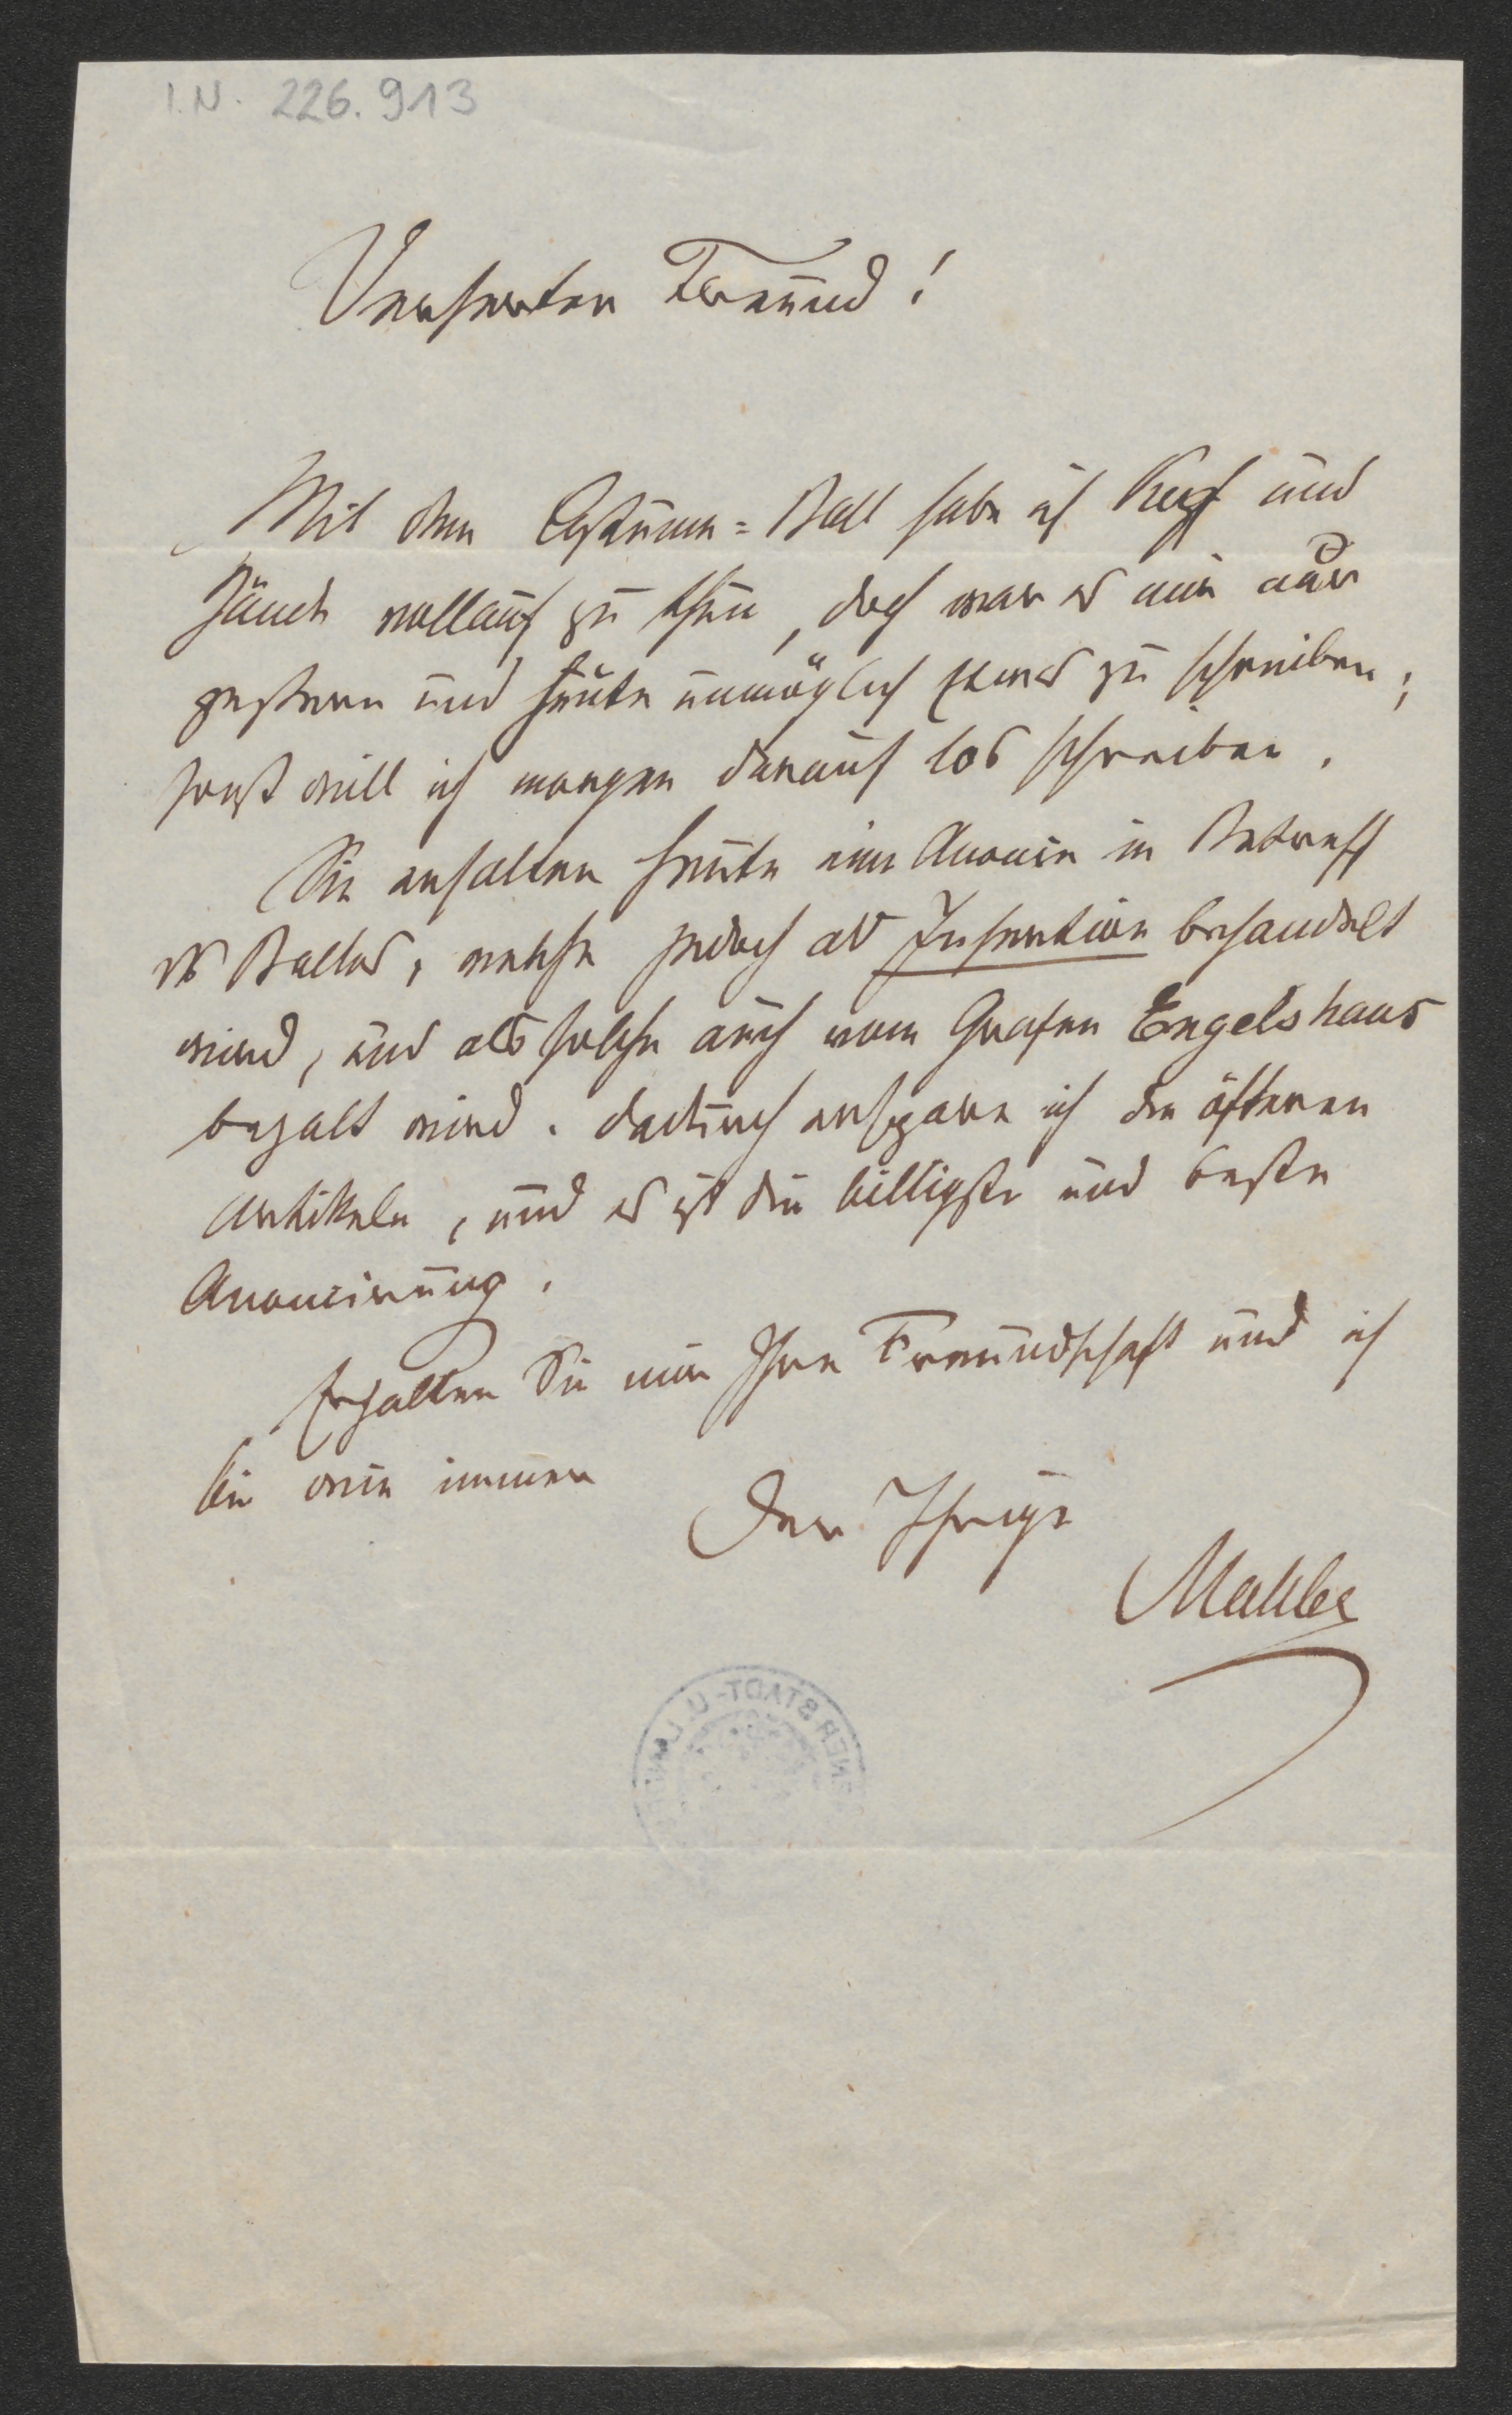 I.N. 226.913
Verehrter Freund!
Mit dem Costüme=Ball habe ich Kopf und
Hände vollauf zu thun, doch war es mir
gestern und heute unmöglich etwas zu schreiben;
sonst will ich morgen darauf los schreiben.
Sie erhalten heute eine Anonce in Betreff
des Balles, welche jedoch als Insertion behandelt
wird, und als solche auch vom Grafen Engelshaus
bezalt wird. Dadurch erspare ich die öfteren
Artikeln, und es ist die billigste und beste
Anoncirung.
Erhalten Sie mir Ihre Freundschaft und ich
bin wie immer
Der Ihrige